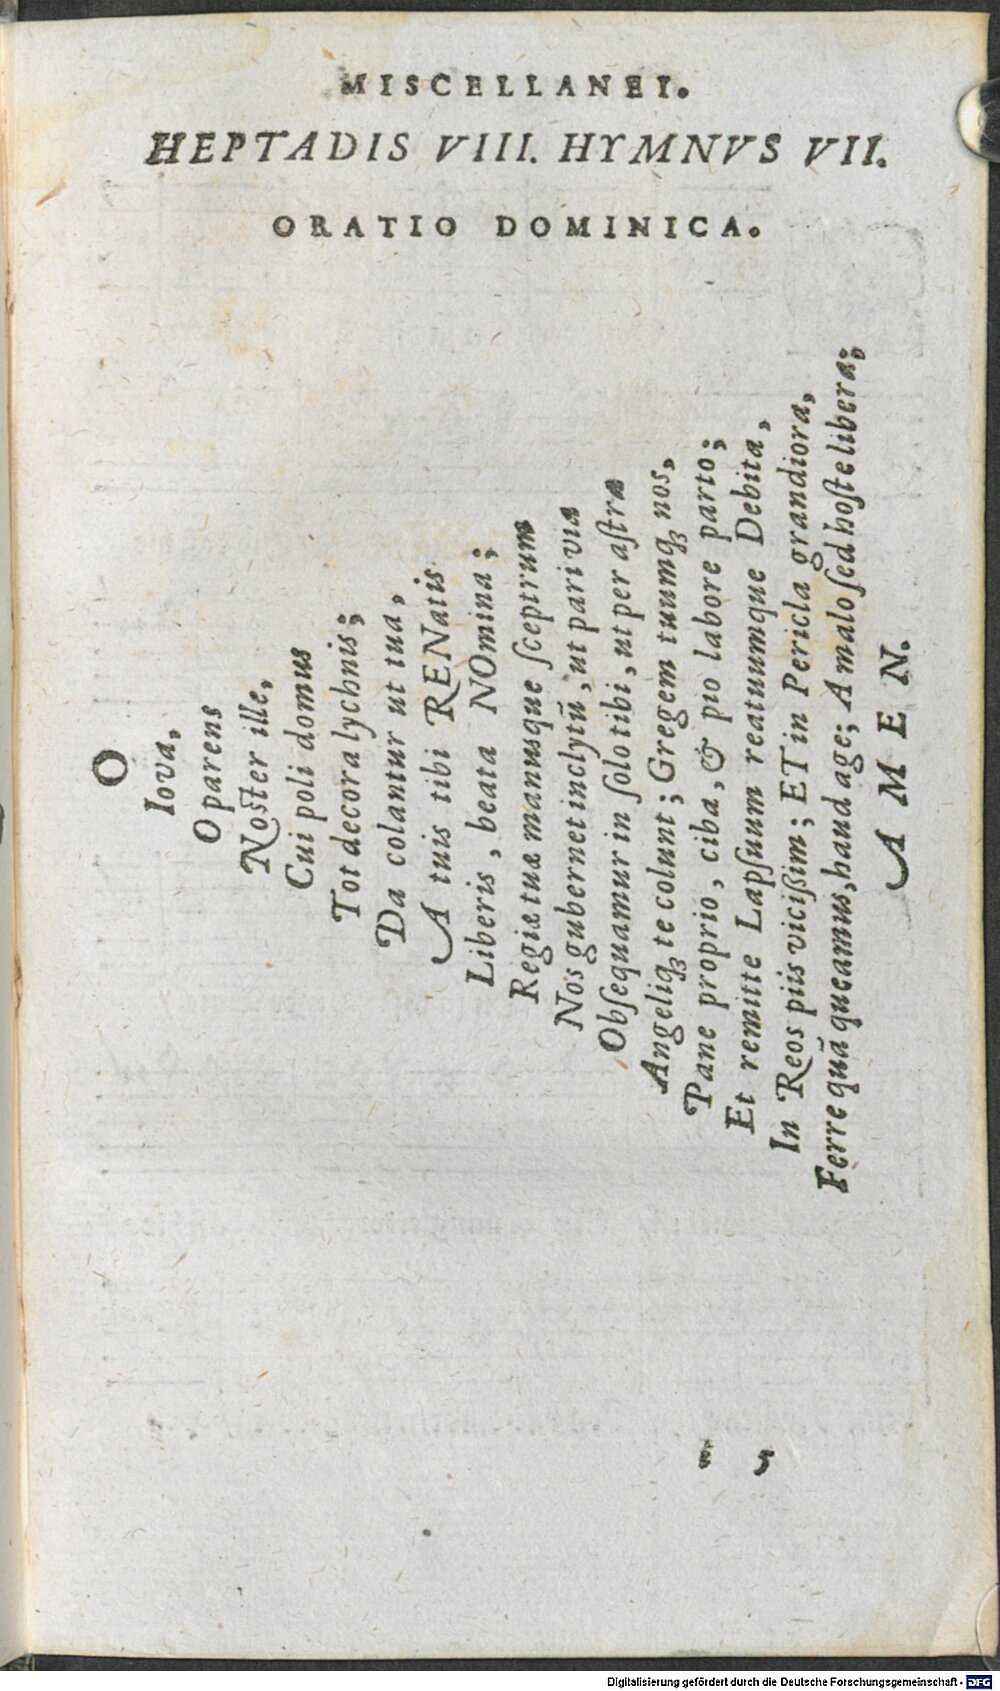 MISCELLANEI.
HEPTADIS VIII. HYMNVS VII.
ORATIO DOMINICA.
O
Iova,
O parens
Noſter ille,
Cui poli domus
Tot decora lychnis;
Da colantur ut tua,
A tuis tibi RENatis
Liberis, beata NOmina;
Regiæ tuæ manusque ſceptrum
Nos gubernet inclytũ, ut pari viæ
Obſequamur in ſolo tibi, ut per aſtra
Angeliqꝫ te colunt; Gregem tuumqꝫ nos,
Pane proprio, ciba, & pio labore parto;
Et remitte Lapſuum reatuumque Debita,
In Reos piis viciſsim; ET in Pericla grandiora,
Ferre quã queamus, haud age; A malo ſed hoſte libera;
AMEN.
Digitalisierung gefördert durch die Deutsche Forschungsgemeinschaft - DFG